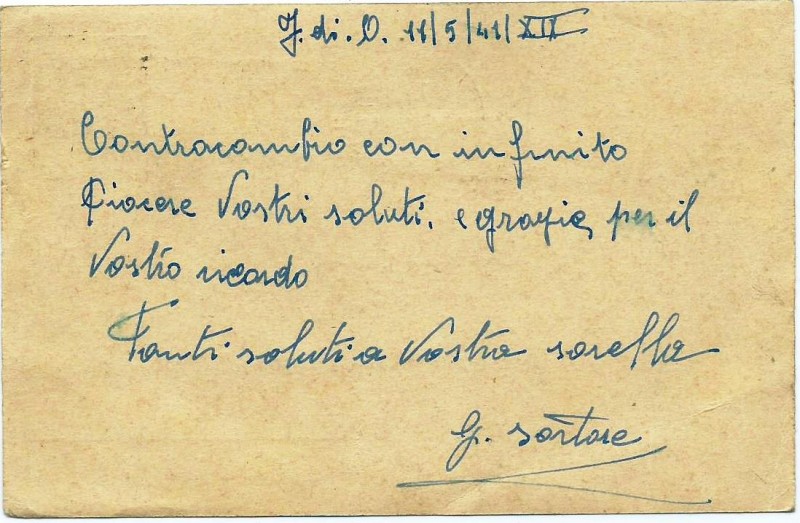 J. di. O. 11/5/41/XIX
Contracambio con infinito
piacere Vostri saluti, e grazie, per il
Vostro ricordo
Tanti saluti a Vostra sorella
G. Sartore